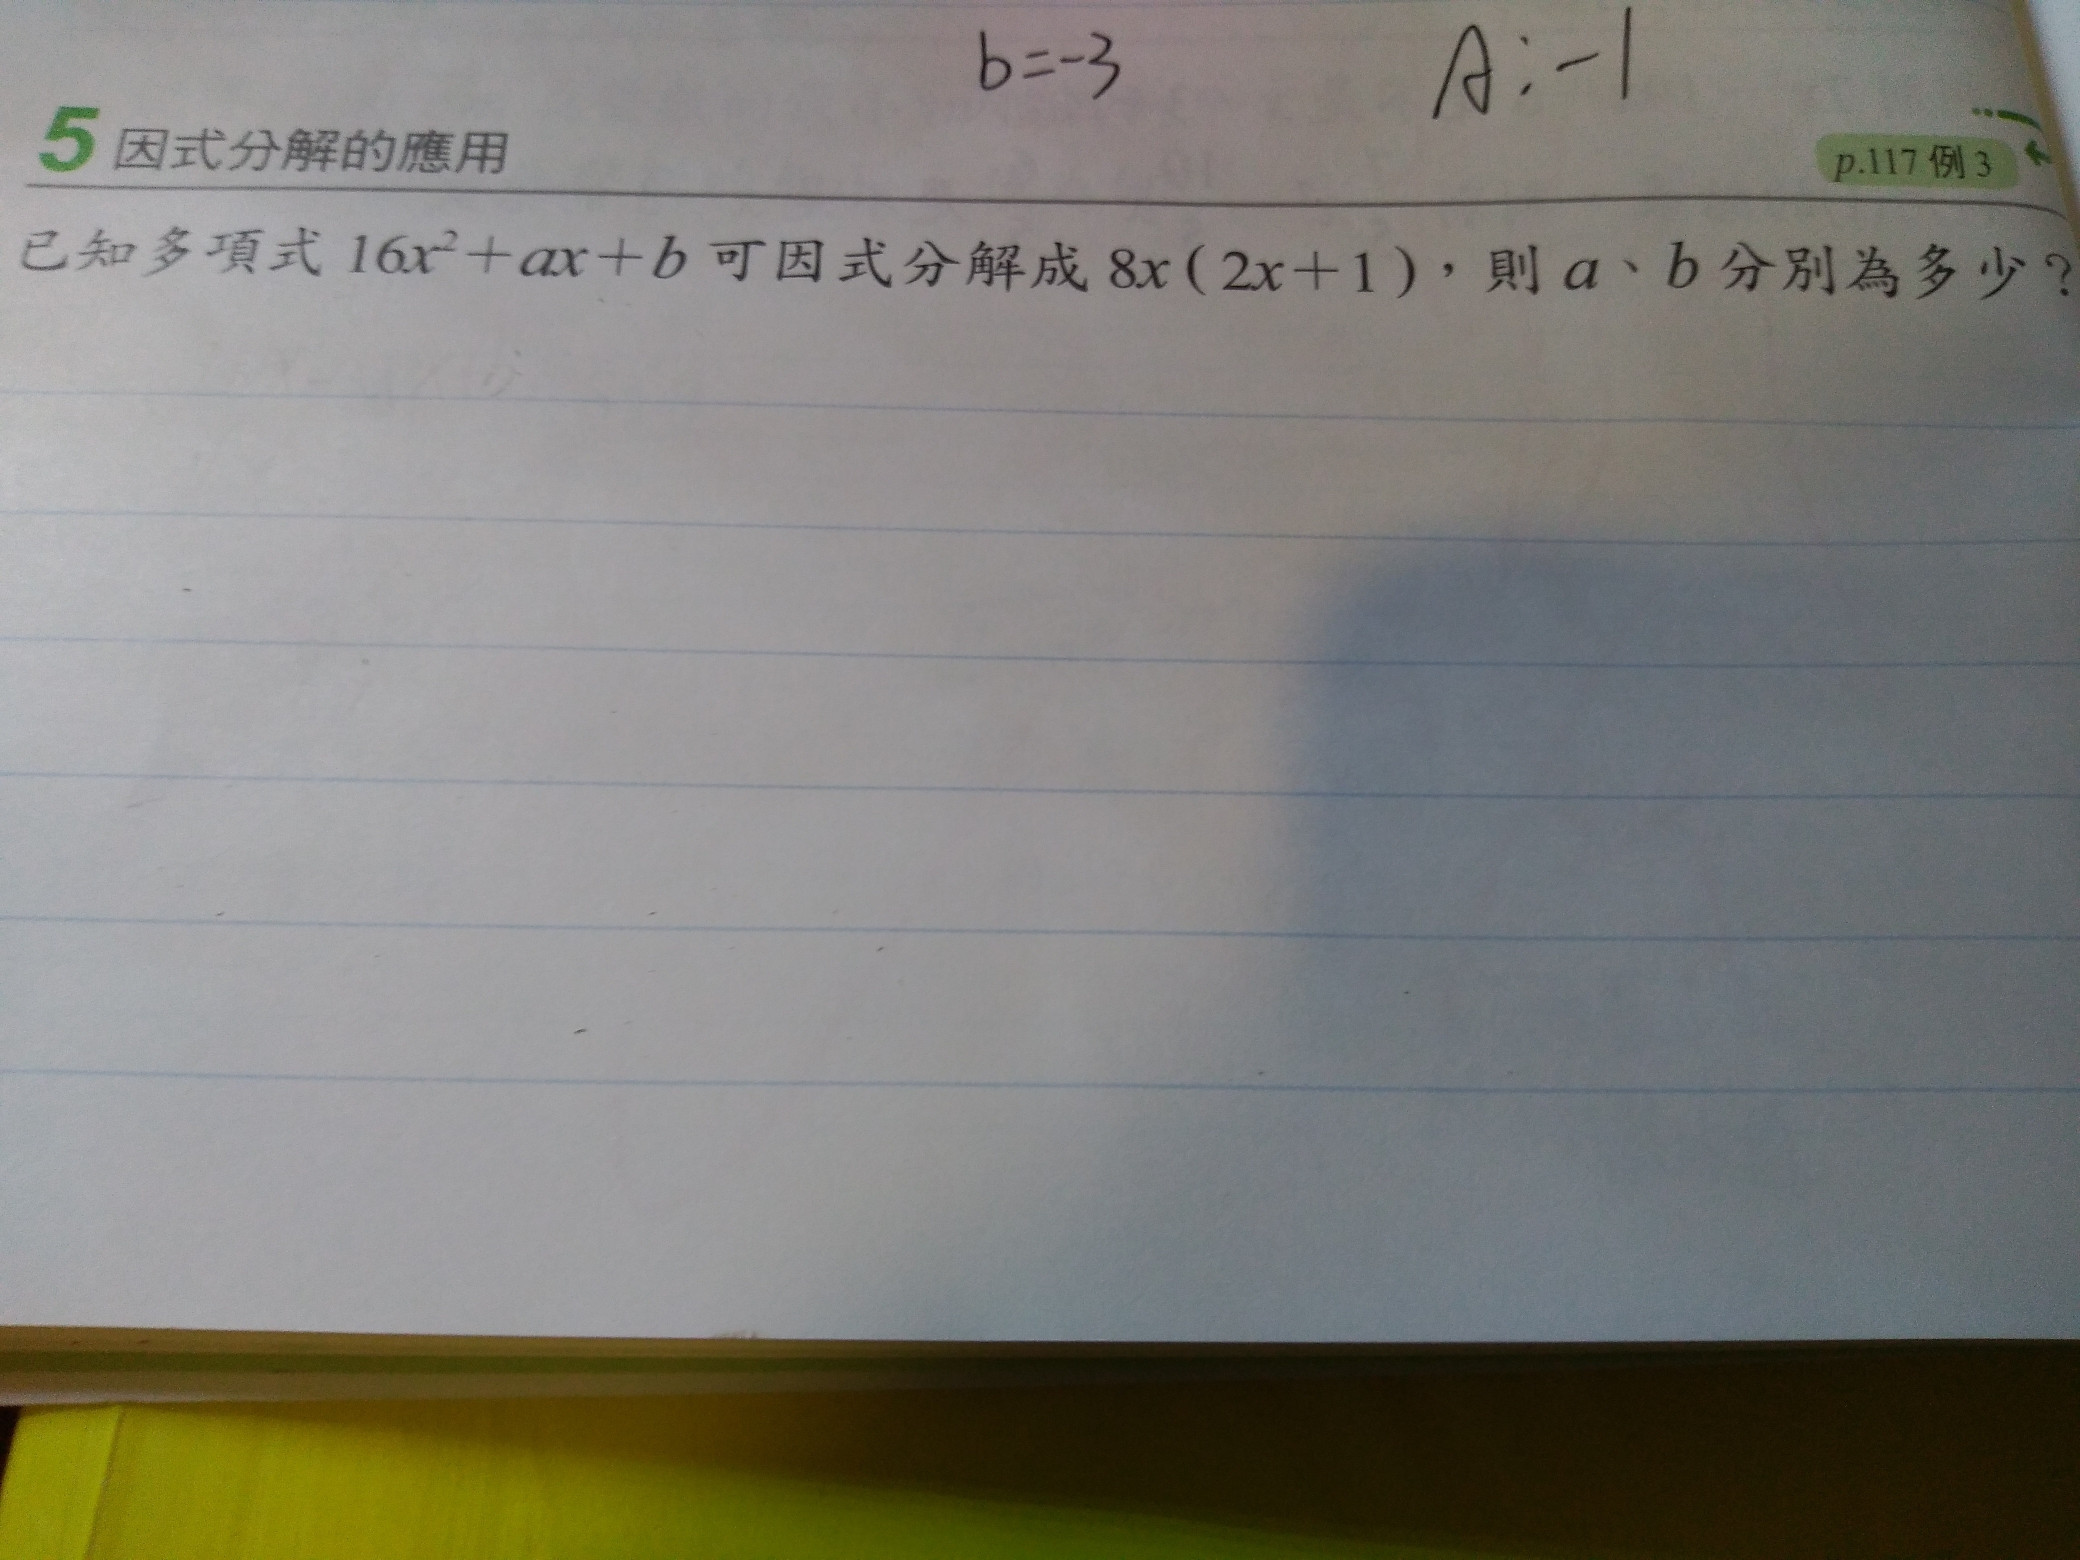 b=-3 A:-1
5 因式分解的應用 p.117 例 3
已知多項式 16x²+ax+b 可因式分解成 8x(2x+1),則 a、b 分別為多少?